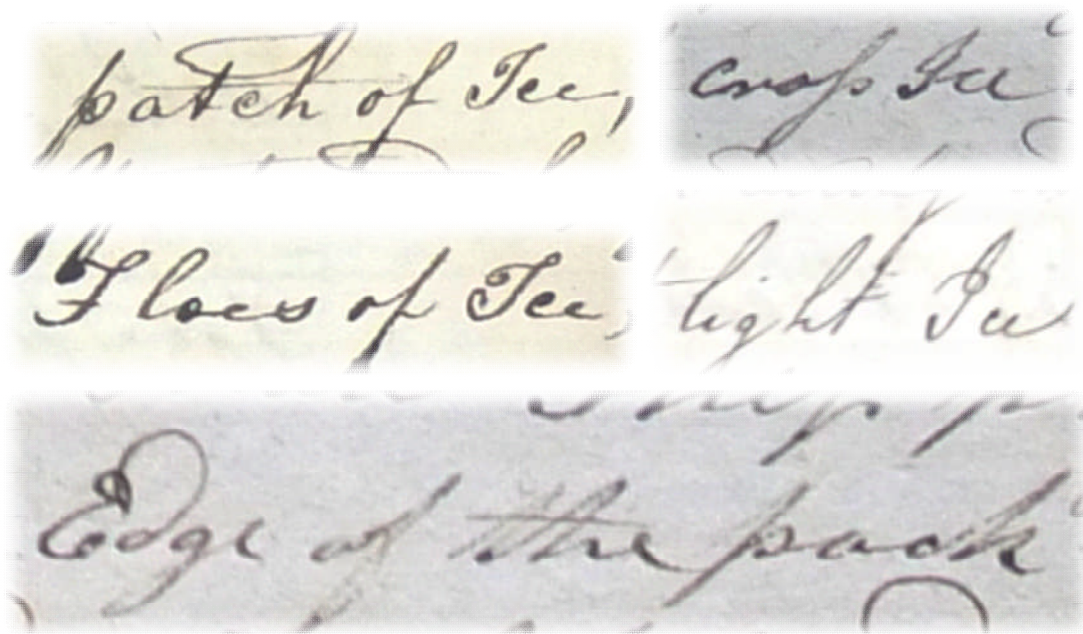 patch of Ice,
croſs Ice
Floes of Ice,
light Ice
Edge of the pack